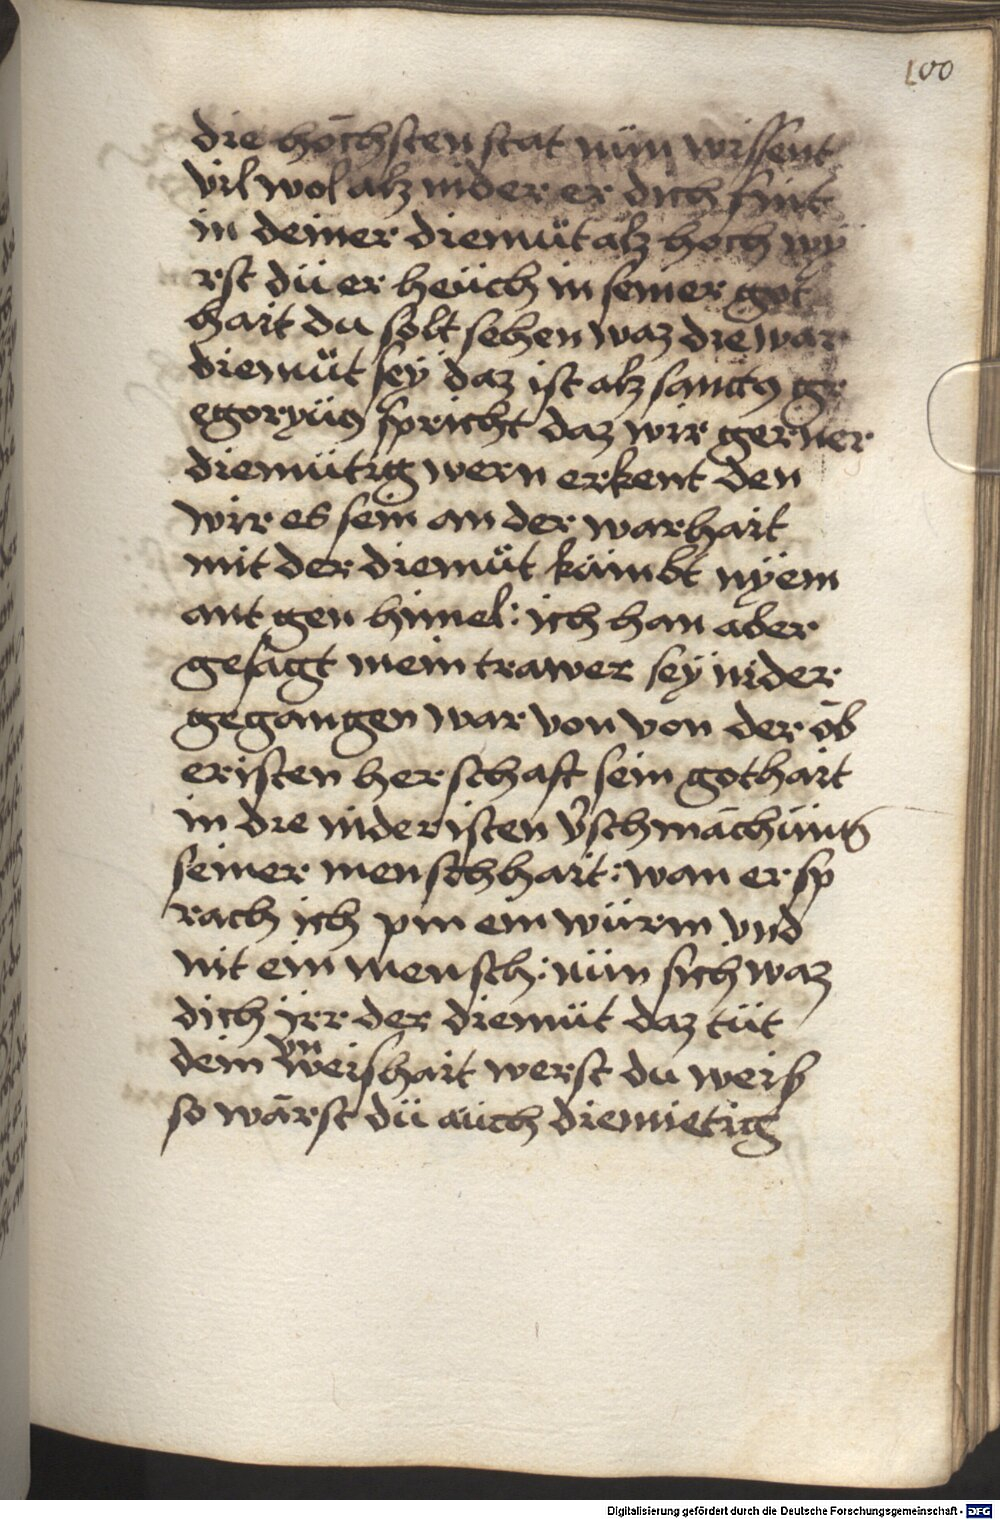 100
die höchsten stat nün wissent
vil wol alz nider er dich fint
in deiner diemüt alz hoch wy
rst dü er heüch in seiner got
hait du solt sehen waz die war
diemüt seÿ daz ist alz sanctus gr
egoryüs spricht daz wir gerner
diemütig wern erkent den
wir es sein an der warhait
mit der diemüt kümbt nÿem
ant gen himel: ich han aber
gesagt mein trawer seÿ nider
gegangen war von von der öb
eristen herschaft sein gothait
in die nideristen v̄schmächüng
seiner menschhait: wan er sp
rach ich pin ein würm vnd
nit ein mensch: nün sich waz
dich irr der diemüt daz tüt
dein vnweishait werst du weis
so wärst dü aüch diemietig
Digitalisierung gefördert durch die Deutsche Forschungsgemeinschaft - DFG